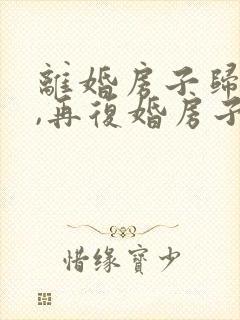 離婚房子歸
,再復婚房子
惜缘寶少